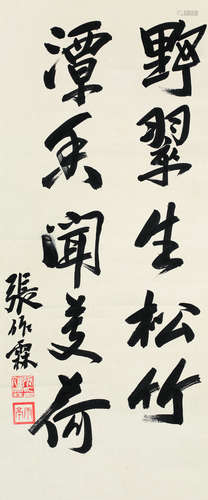 野翠生松竹
潭香聞芰荷
張作霖